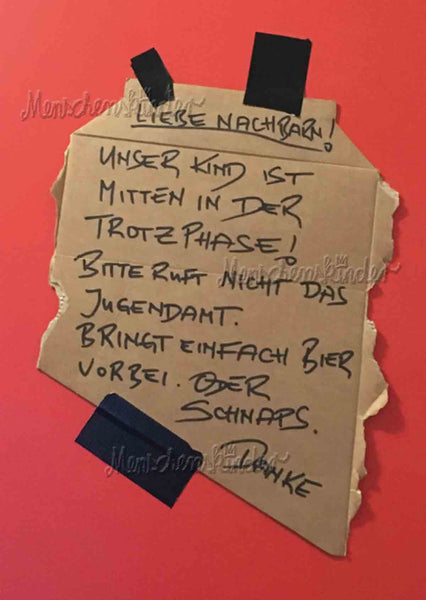 LIEBE NACHBARN!
UNSER KIND IST
MITTEN IN DER
TROTZPHASE!
BITTE RUFT NICHT DAS
JUGENDAMT.
BRINGT EINFACH BIER
VORBEI. ODER
SCHNAPS.
DANKE
Menschenskinder
Menschenskinder
Menschenskinder